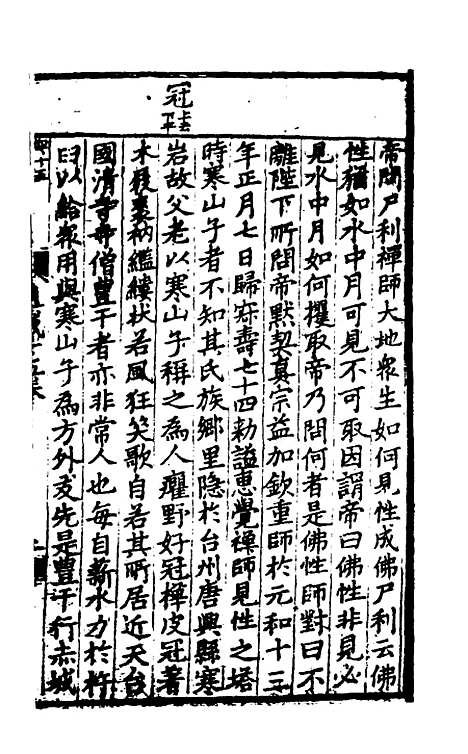 帝問尸利禪師大地衆生如何見性成佛尸利云佛
性猶如水中月可見不可取因謂帝曰佛性非見必
見水中月如何攫取帝乃問何者是佛性師對曰不
離陛下所問帝默契真宗益加欽重師於元和十三
年正月七日歸寂壽七十四勅謚惠覺禪師見性之塔
時寒山子者不知其氏族鄉里隐於台州唐興縣寒
岩故父老以寒山子稱之為人癯野好冠樺皮冠著
木屐裘衲繿縷狀若風狂笑歌自若其所居近天台
國清寺寺僧豊干者亦非常人也每自薪水力於杵
臼以給衆用與寒山子為方外友先是豊干行赤城
冠